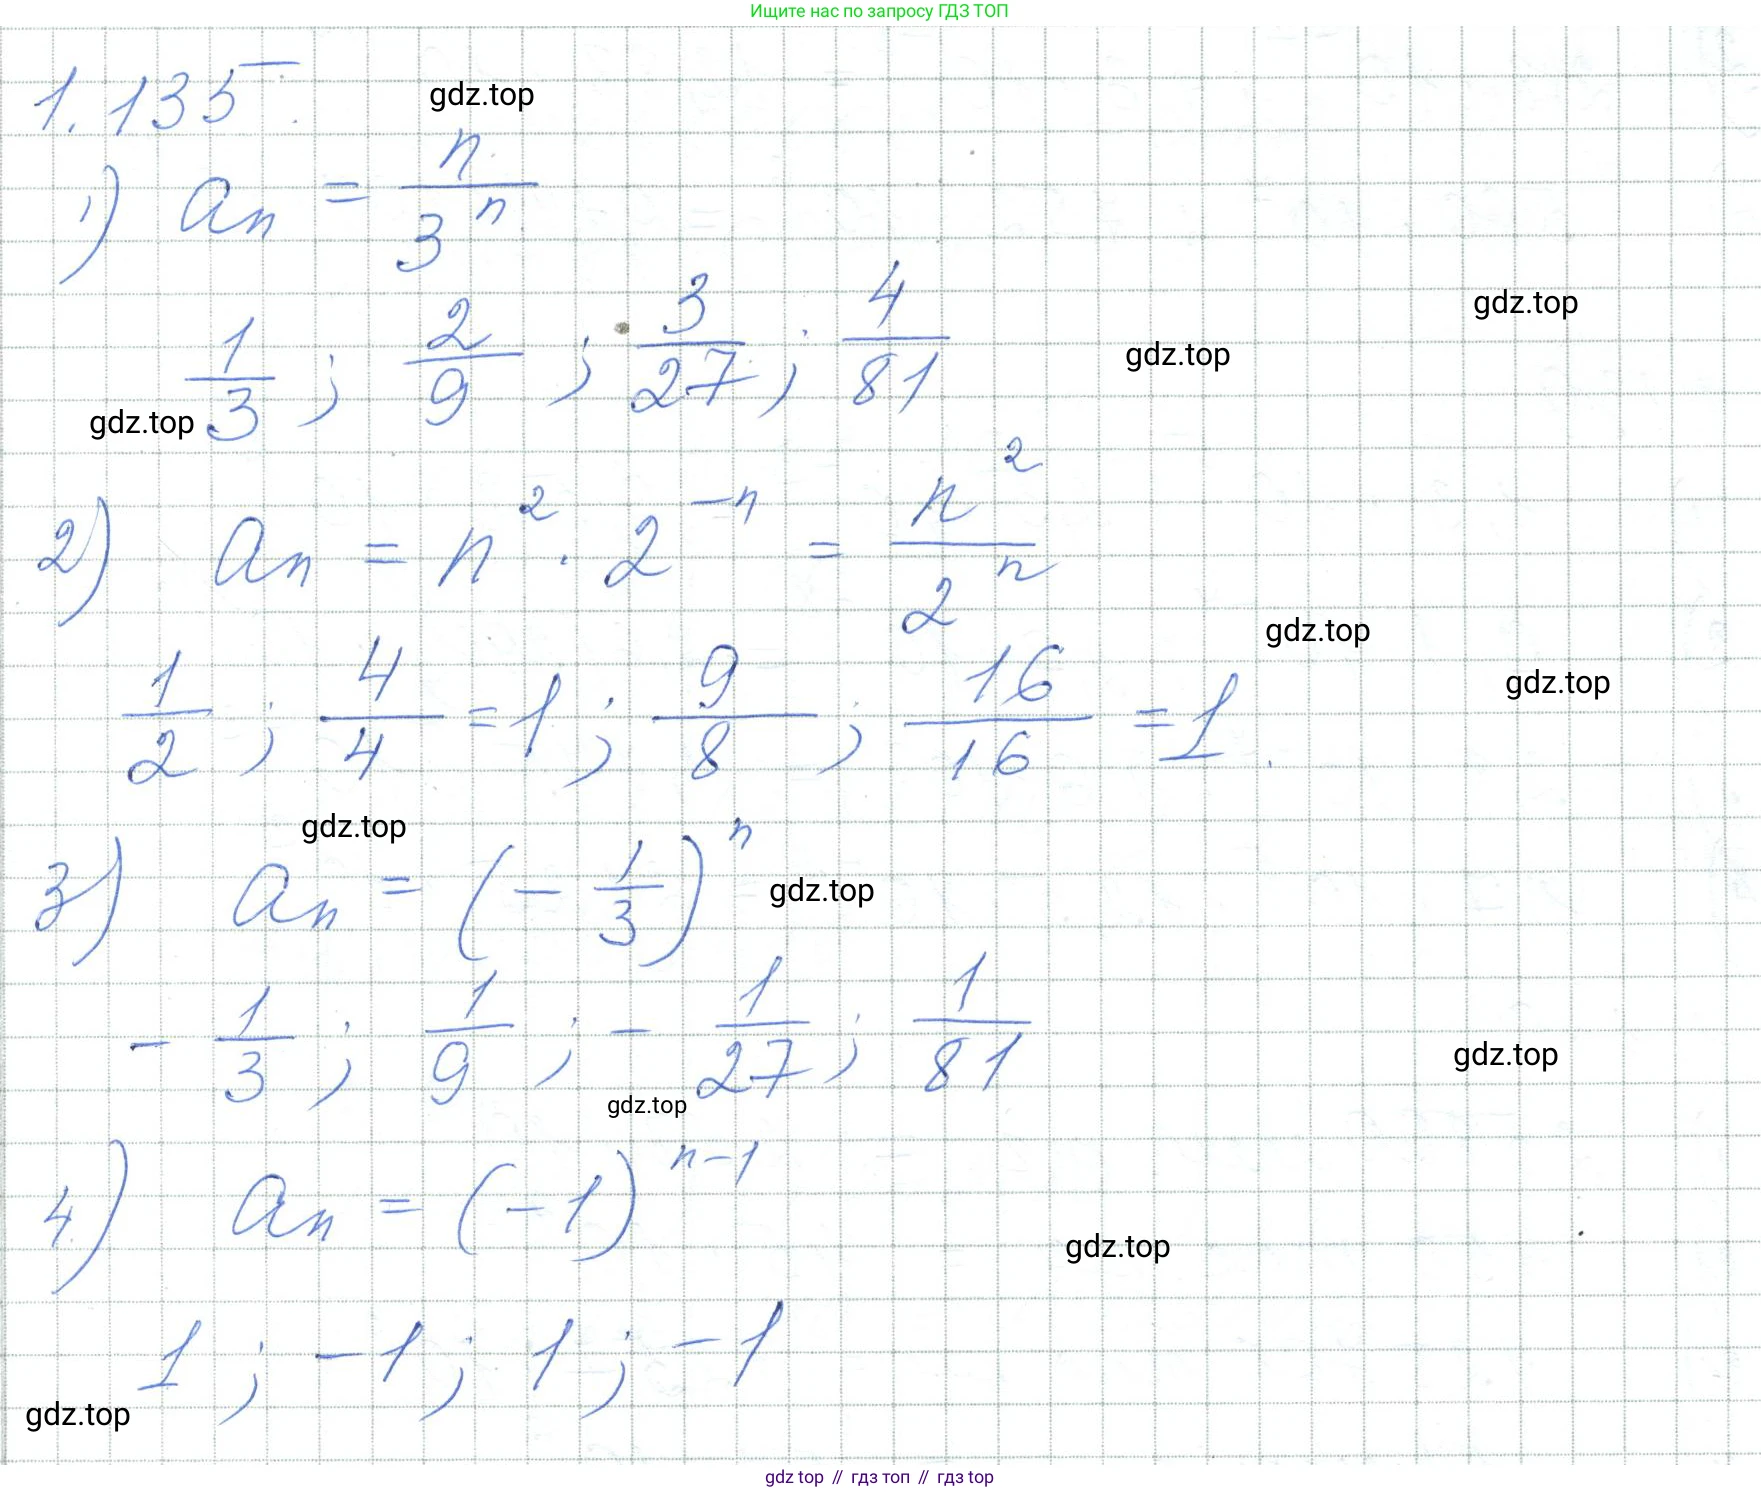 Ищите нас по запросу ГДЗ ТОП
1.135.
gdz.top
1) aₙ = n/3ⁿ
gdz.top
1/3 ; 2/9 ; 3/27 ; 4/81
gdz.top
gdz.top
2) aₙ = n² · 2⁻ⁿ = n²/2ⁿ
gdz.top
1/2 ; 4/4 = 1 ; 9/8 ; 16/16 = 1.
gdz.top
gdz.top
3) aₙ = (- 1/3)ⁿ
gdz.top
- 1/3 ; 1/9 ; - 1/27 ; 1/81
gdz.top
gdz.top
4) aₙ = (-1)ⁿ⁻¹
gdz.top
1 ; -1 ; 1 ; -1
gdz.top
gdz top // гдз топ // гдз top